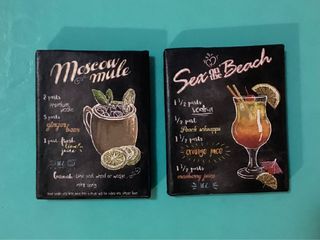 Moscow
mule
2 parts
premium
vodka
3 parts
ginger
beer
1 part fresh
lime
juice
ice
Garnish - lime and wheel or wedge,
mint sprig
Sex on the Beach
1 1/2 parts
vodka
1/2 part
Peach schnapps
1 1/2 parts
orange juice
1 1/2 parts
cranberry juice
ice